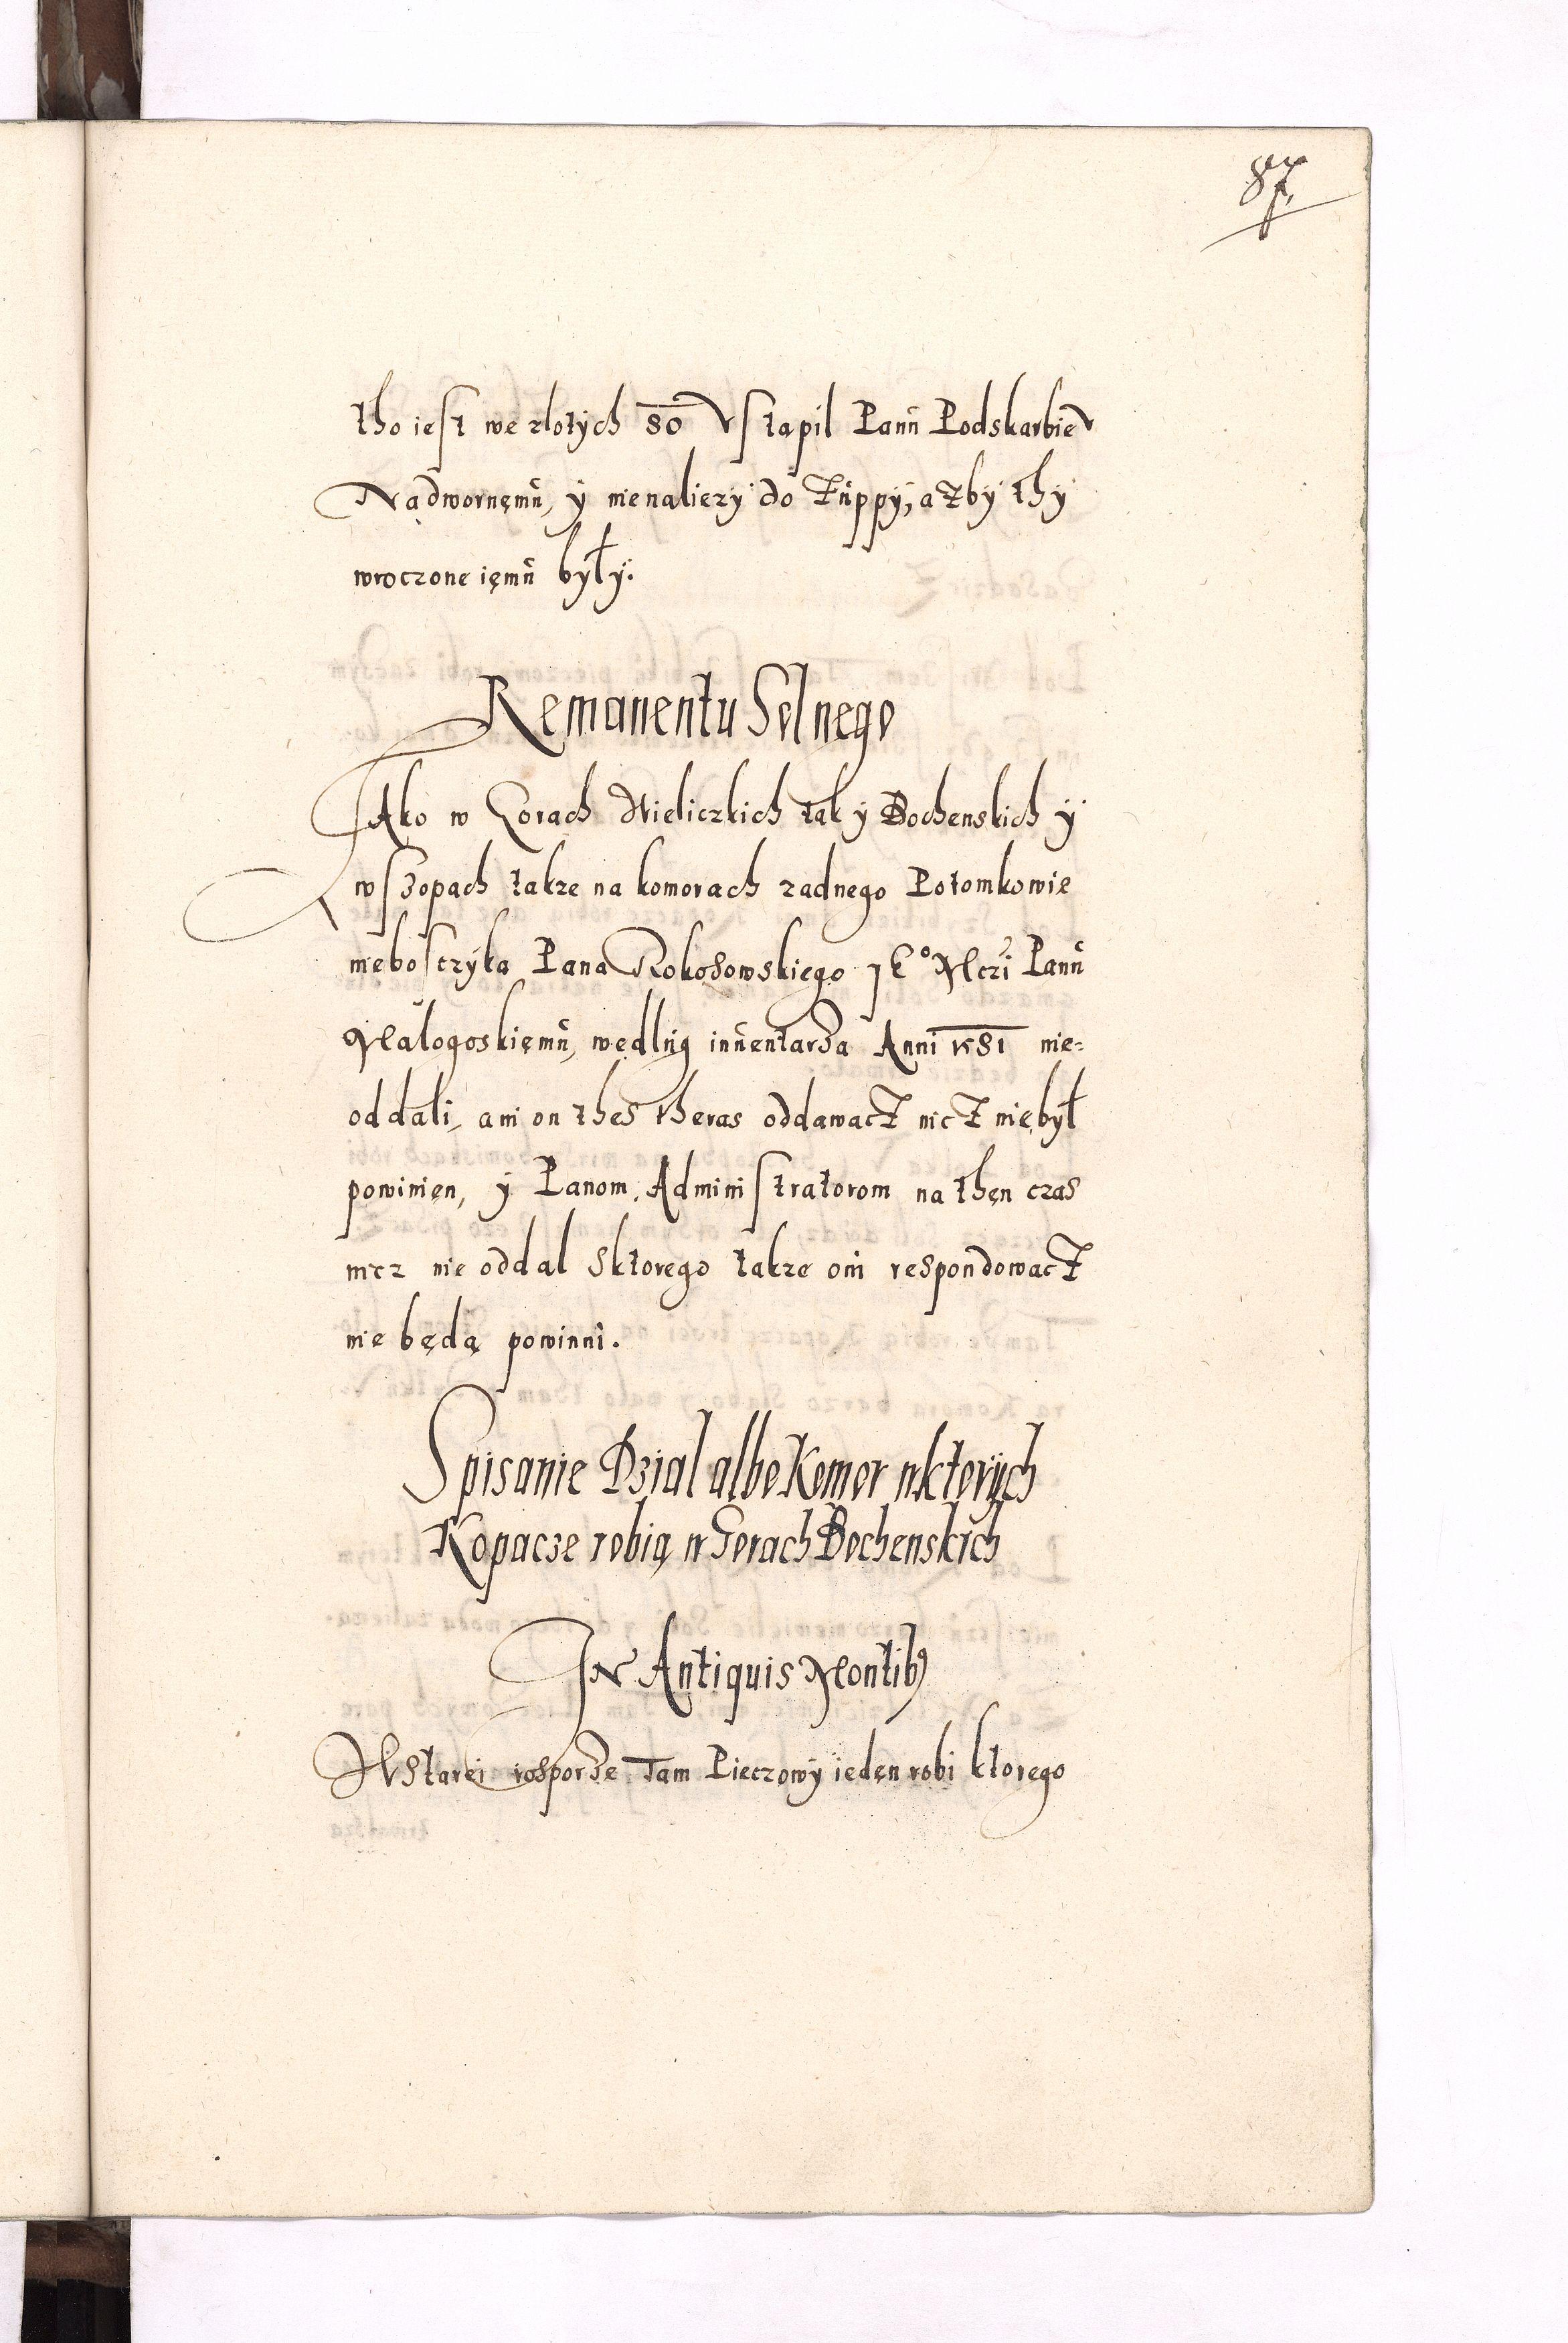 87.
tho iest we zlotych 80 Vstąpil Panu Podskarbieu
Nądwornęmu, ÿ nienaliezÿ do Zuppÿ, a zbÿ thÿ
wroczone ięmu bÿłÿ.
Remanentu Solnego
Jako w Gorach Wieliczkich tak ÿ Bochenskich ÿ
w szopach takze na komorach zadnego Potomkowie
nieboscżyka Pana Rokosowskiego JEº Mczi Panu
Malogoskięmu, wędlug inuentarza Anni 1581 nie=
oddali, ani on thes theras oddawacz nicz niębył
powinięn, ÿ Panom Administratorom na thęn czas
nicz nie oddal sktorego takze oni respondowacz
nie będą powinni.
Spisanie Dzial albo Komor wktorÿch
Kopacze robią w Gorach Bochenskich
In Antiquis Montibꝰ
W starei rosporze Tam Pieczowÿ iedęn robi ktorego